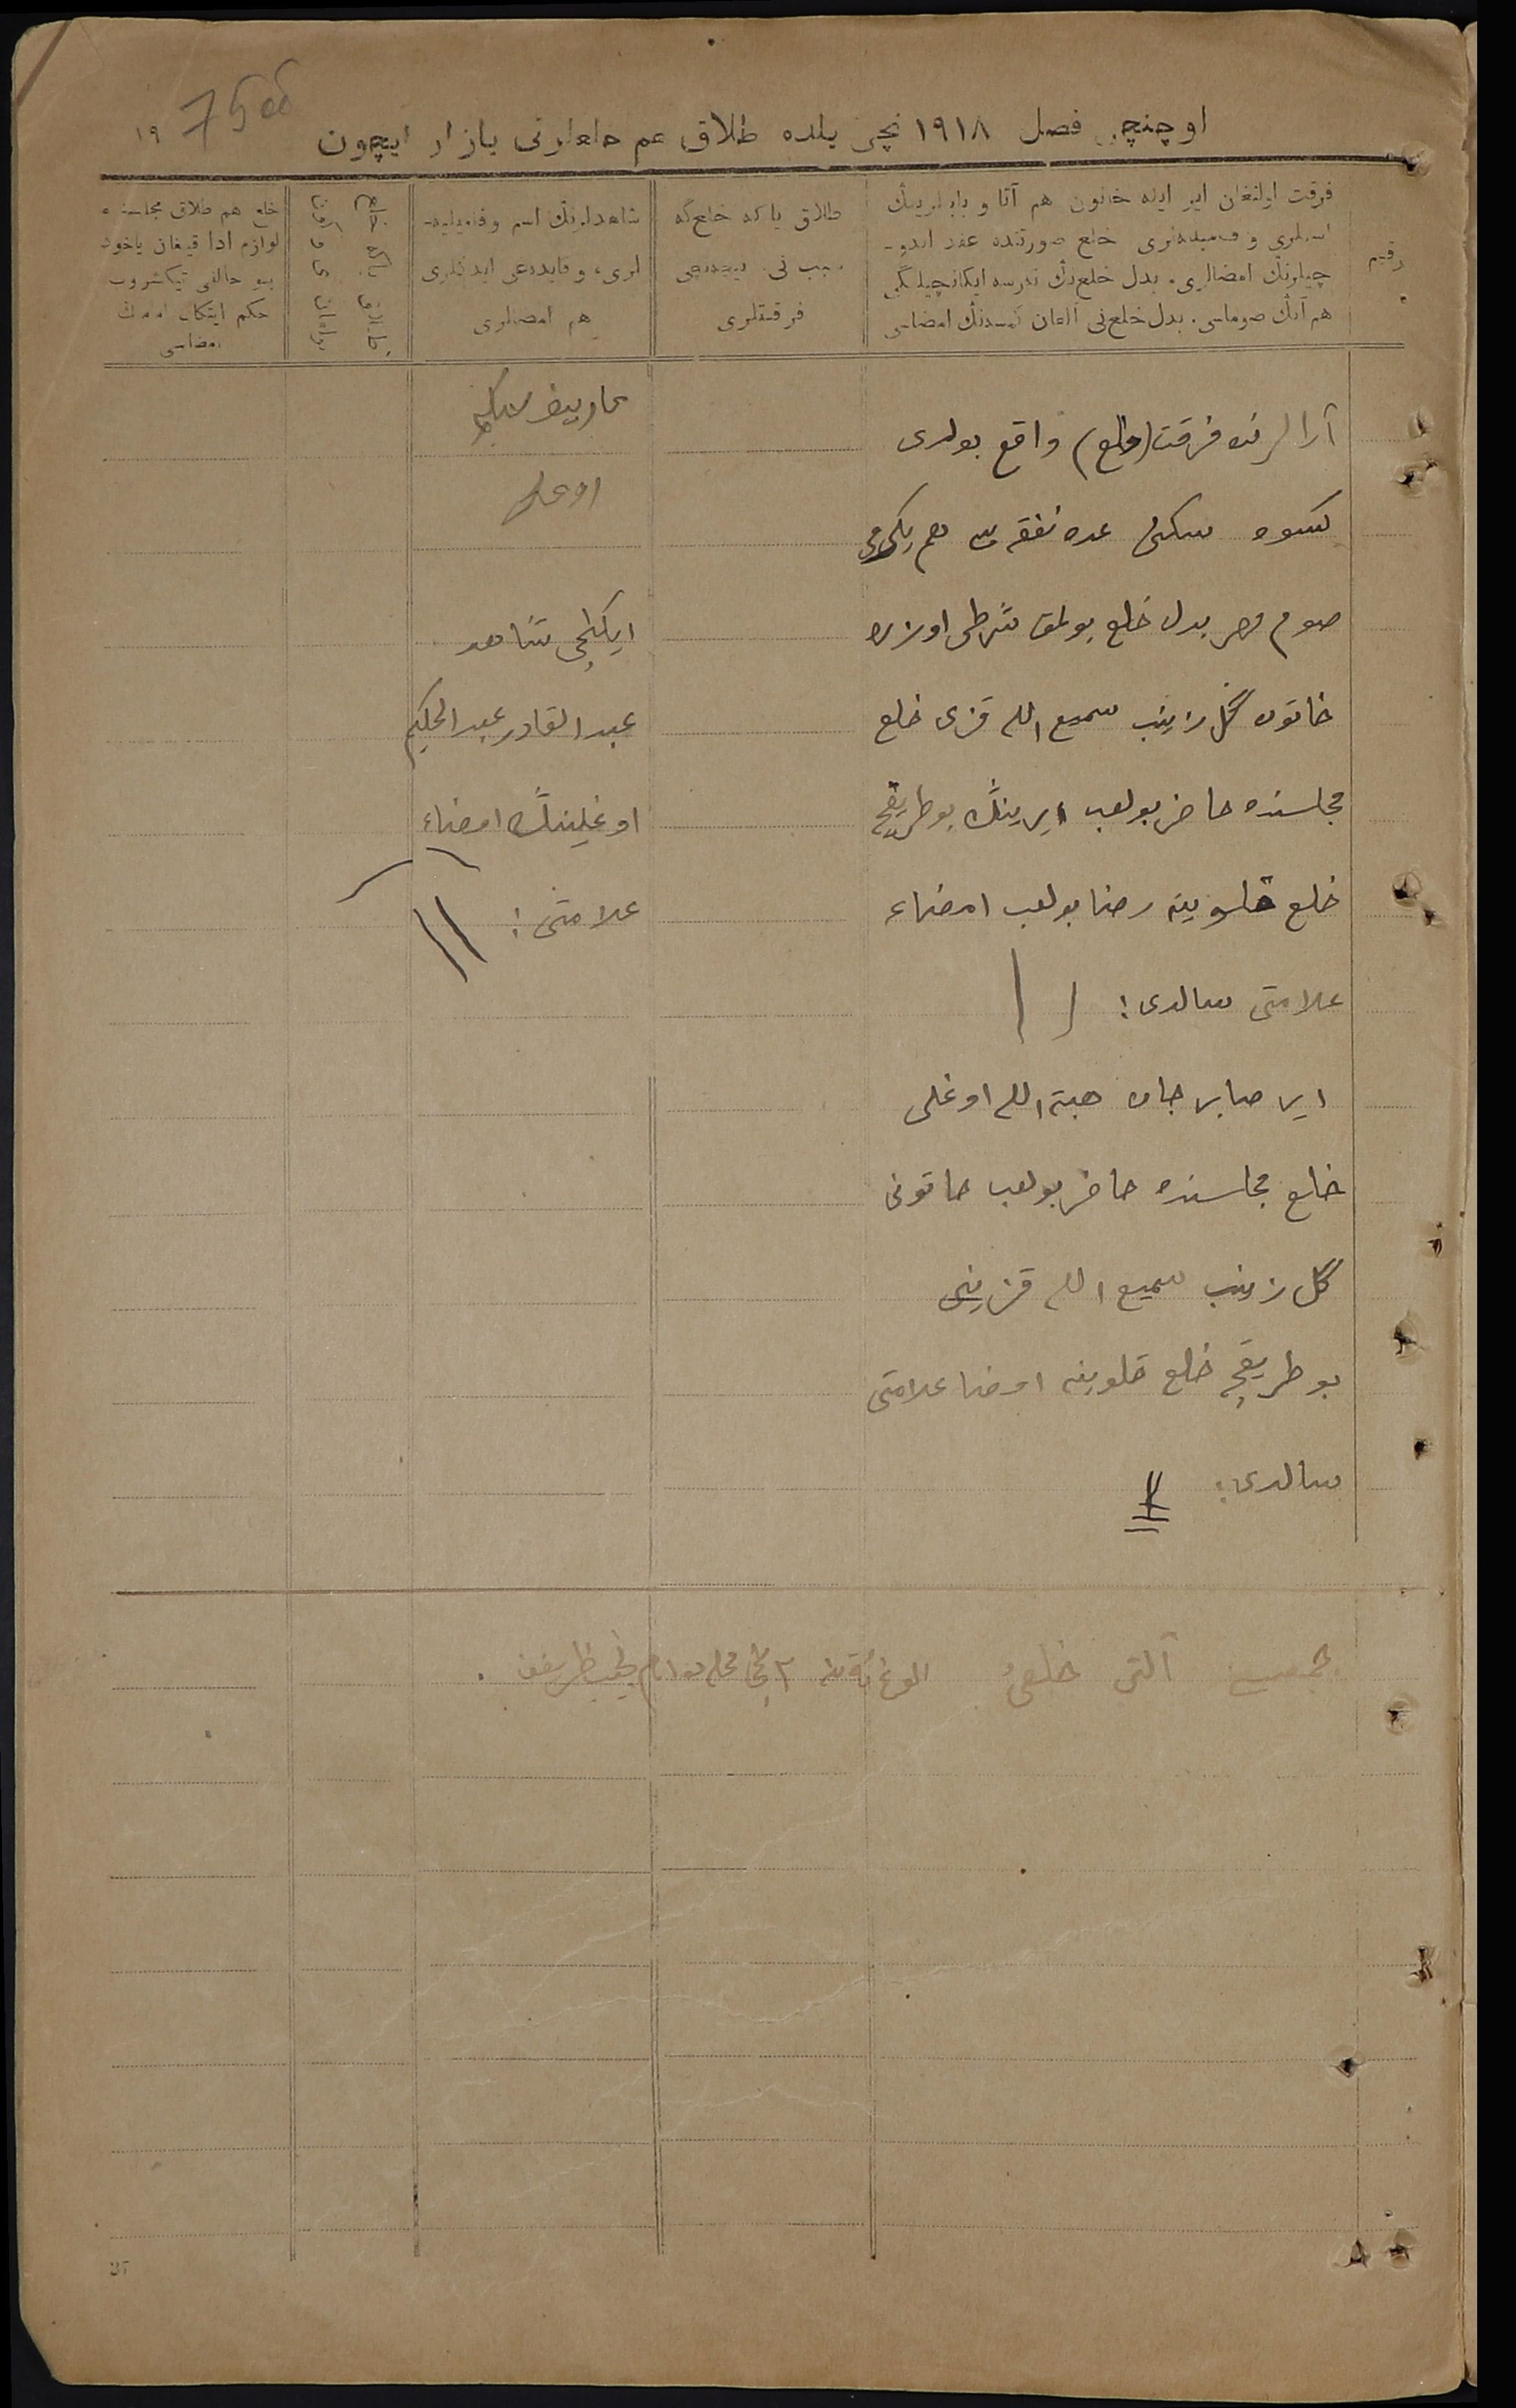 اوچنچی فصل ۱۹۱۸ نچی یلده طلاق هم خلعلرنی یازار ایچون
۱۹
رقیم
فرقت اولنغان ایر ایله خاتون هم آتا و بابالرینڭ
اسملری و فامیلیه‌لری خلع صورتنده عقد ایدو-
چیلرنڭ امضالری. بدل خلع‌نڭ نرسه ایکانچیلگی
هم آنڭ صوماسی. بدل خلع‌نی آلغان کمسه‌نڭ امضاسی
طلاق یا که خلع‌گه
سبب نی.
فرقتلری
شاهدلرنڭ اسم و فامیلیه-
لری، و قایدەغی ایدکلری
هم امضالری
خلع هم طلاق مجلسنده
لوازم ادا قیلغان یاخود
بو حالنی تیکشروب
حکم ایتکان امام‌نڭ
امضاسی
آرالرنده فرقت (خلع) واقع بولدی
کسوه سکنی عده نفقه سی هم یکرمی
صوم مهر بدل خلع بولمق شرطی اوزره
خاتون گل زینب سمیع الله قزی خلع
مجلسنده حاضر بولعب ایرینڭ بو طریقچه
خلع قلوینه رضا بولعب امضاء
علامتی سالدی:
ایر صابر جان هبة الله اوغلی
خلع مجلسنده حاضر بولعب خاتونی
گل زینب سمیع الله قزینی
بو طریقچه خلع قلوینه امضا علامتی
سالدی:
اوغلی
ایکنچی شاهد
عبد القادر عبد الحکیم
اوغلینڭ امضاء
علامتی:
جمعسی آلتی خلع